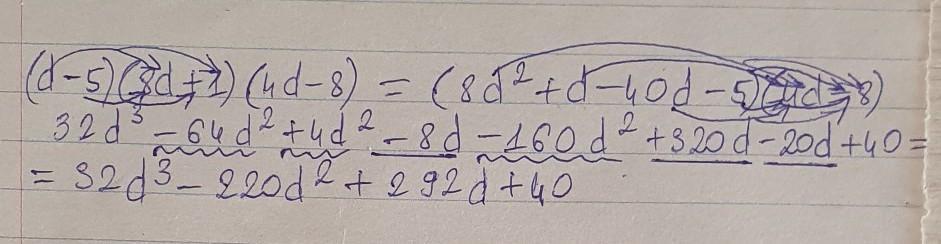 (d-5)(8d+1)(4d-8) = (8d²+d-40d-5)(4d-8)
32d³-64d²+4d²-8d-160d²+320d-20d+40=
=32d³-220d²+292d+40